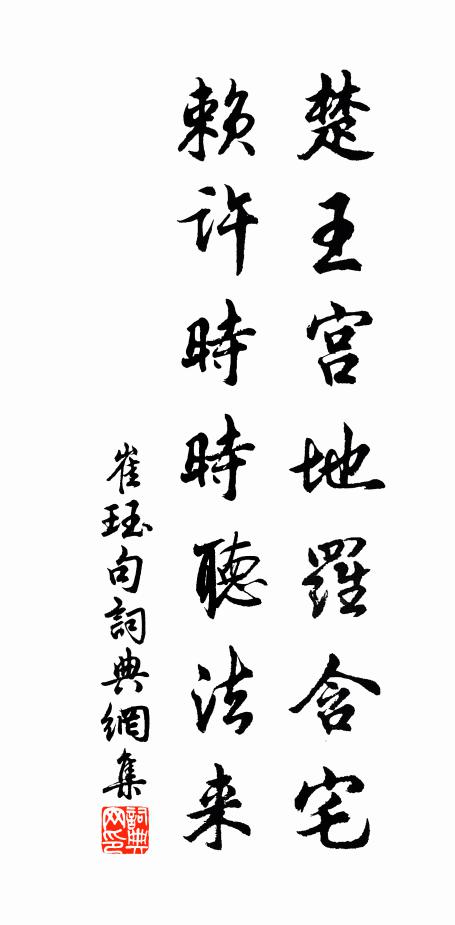 楚王宫地羅含宅
賴許時時聽法来
崔珏句詞典網集
詞典网印